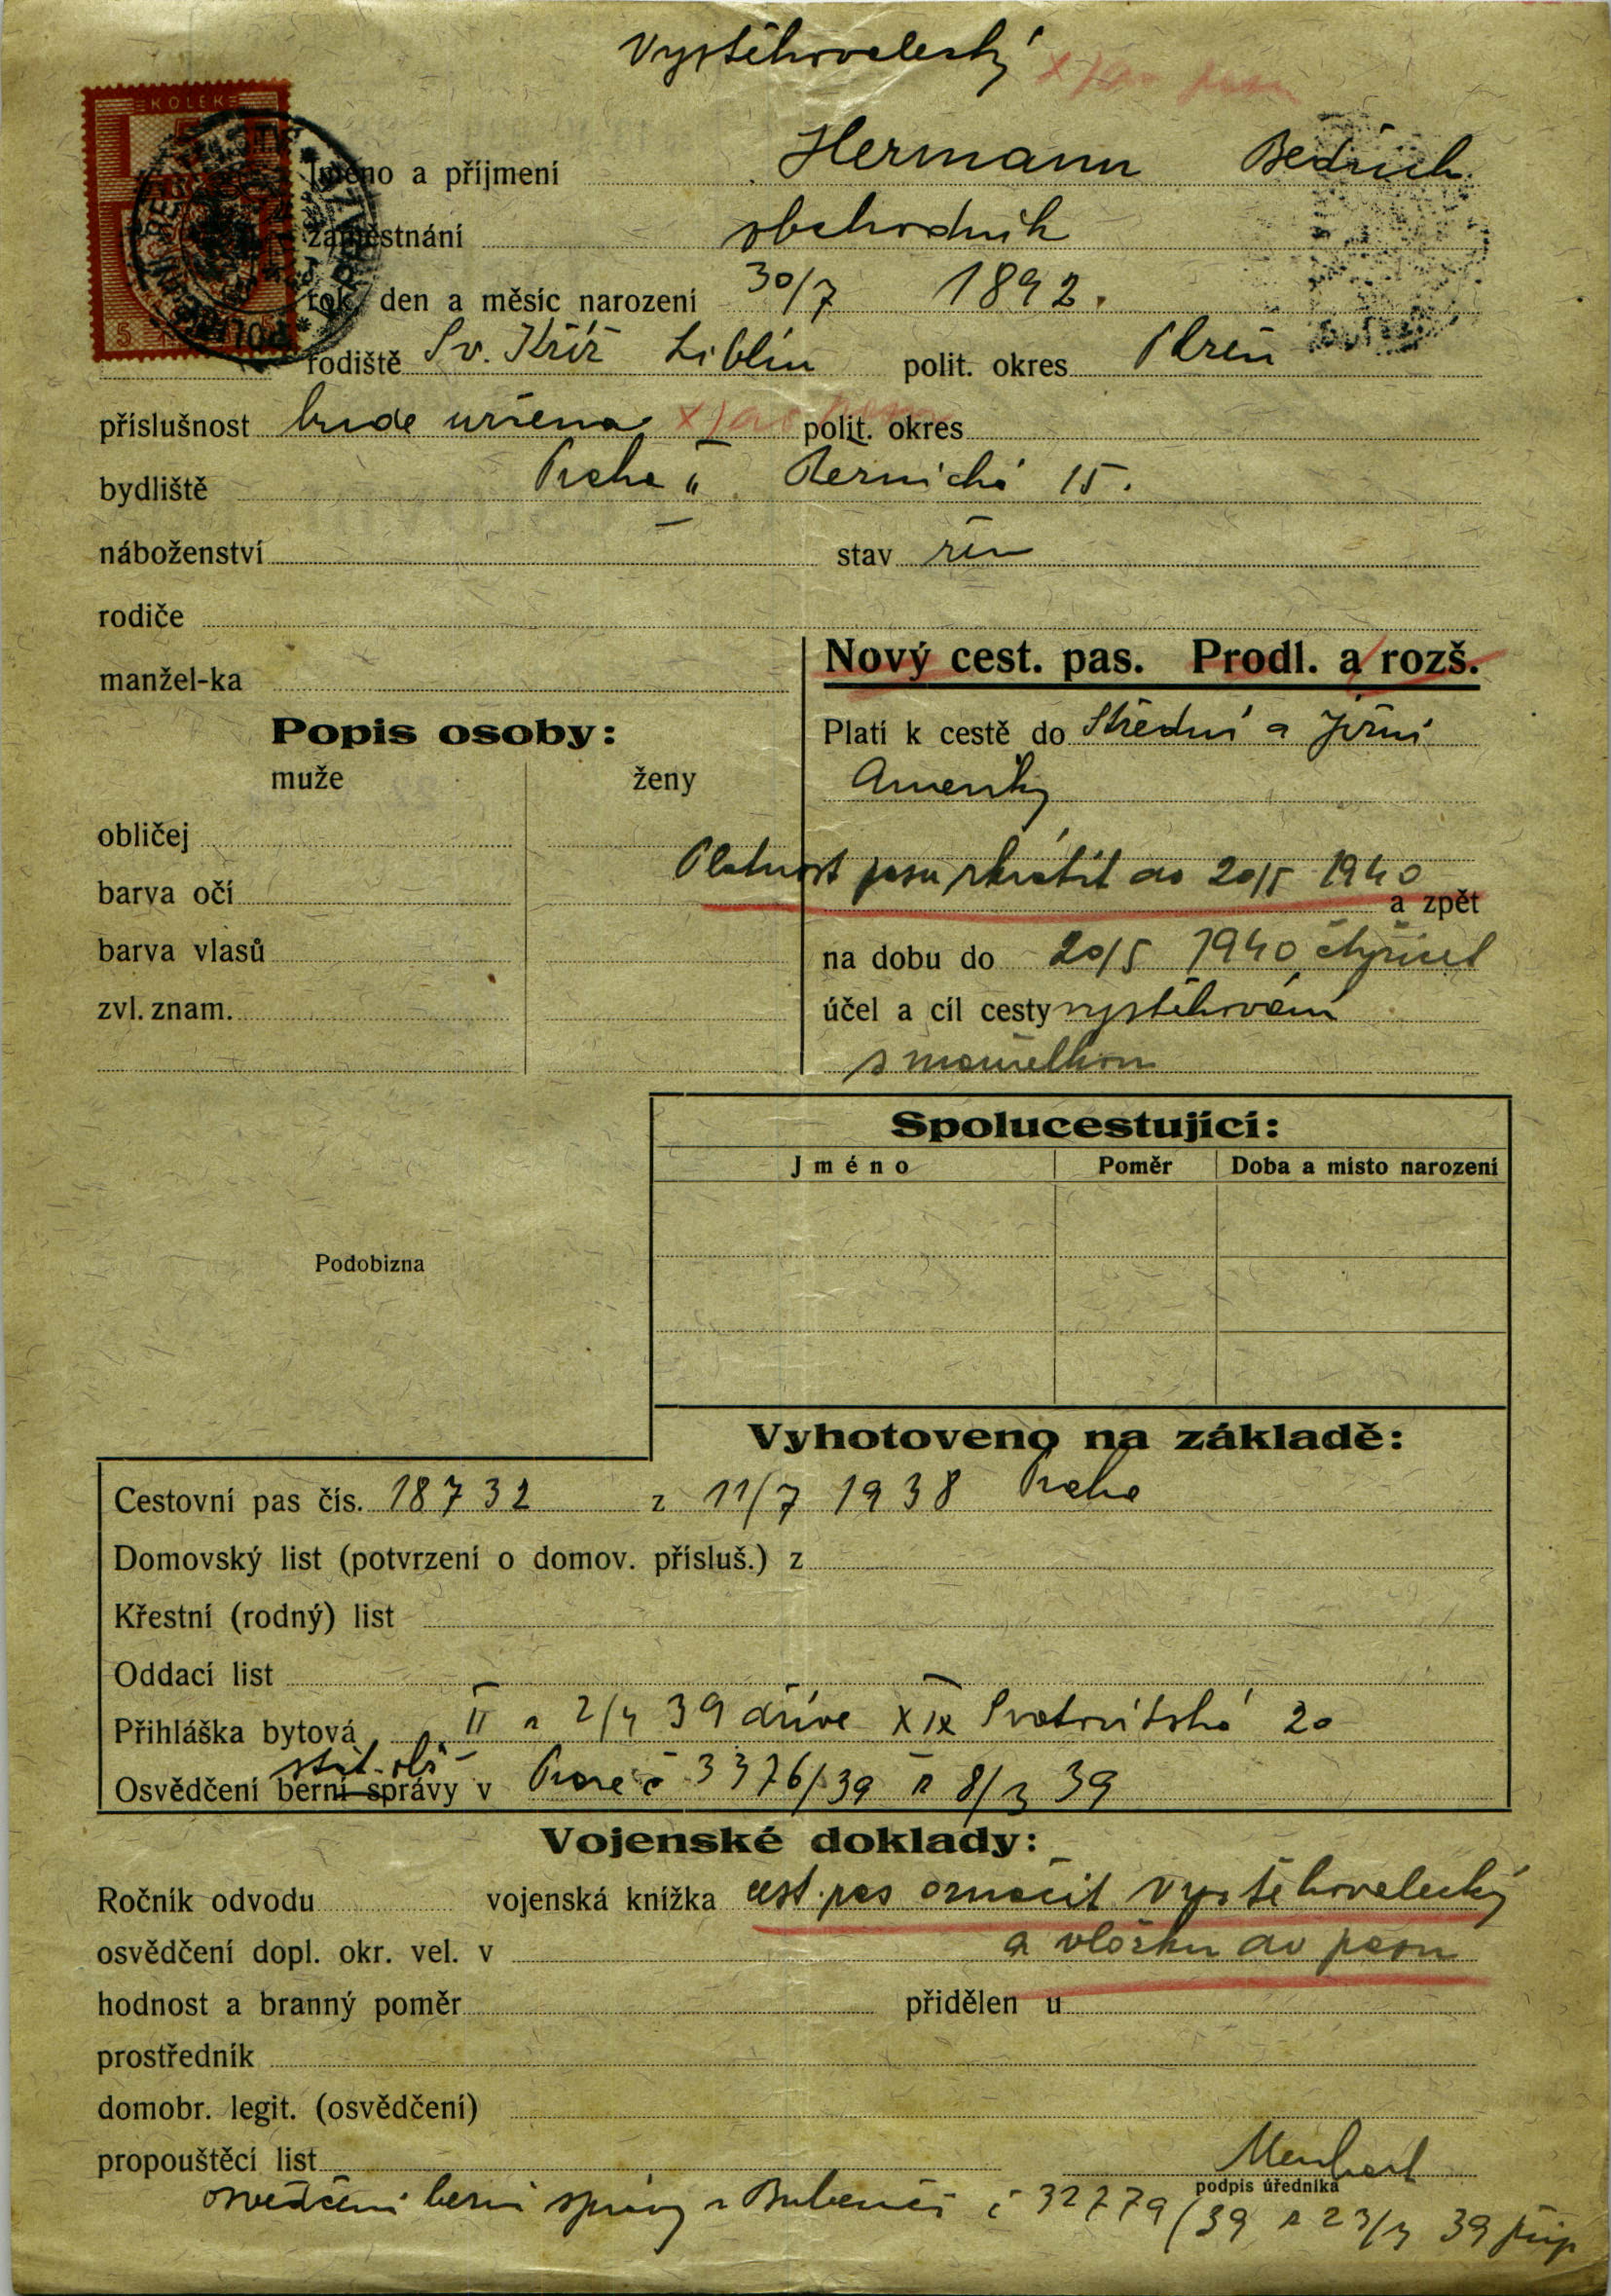 Vystěhovalecký
KOLEK
Jméno a příjmení Hermann Bedřich
zaměstnání obchodník
rok, den a měsíc narození 30/7 1892.
rodiště Sv. Kříž Liblín polit. okres Plzeň
příslušnost bude určena polit. okres
bydliště Praha II. 15.
náboženství stav žen
rodiče
manžel-ka
Nový cest. pas. Prodl. a rozš.
Popis osoby:
Platí k cestě do Střední a Jižní
muže ženy
Ameriky
obličej
Platnost pasu zkrátit do 20/5 1940
barva očí a zpět
barva vlasů na dobu do 20/5 1940 čtyřicet
zvl. znam. účel a cíl cesty vystěhování
s manželkou
Spolucestující:
Jméno Poměr Doba a místo narození
Podobizna
Vyhotoveno na základě:
Cestovní pas čís. 18732 z 11/7 1938 Praha
Domovský list (potvrzení o domov. přísluš.) z
Křestní (rodný) list
Oddací list
Přihláška bytová II z 2/4 39 dříve XIX Svatovítská 20
Osvědčení berní správy v Praze č 3376/39 z 8/3 39
Vojenské doklady:
Ročník odvodu vojenská knížka cest. pas označit vystěhovalecký
osvědčení dopl. okr. vel. v a vložku do pasu
hodnost a branný poměr přidělen u
prostředník
domobr. legit. (osvědčení)
propouštěcí list
podpis úředníka
osvědčení berní správy v Bubenči č 32779/39 z 23/3 39